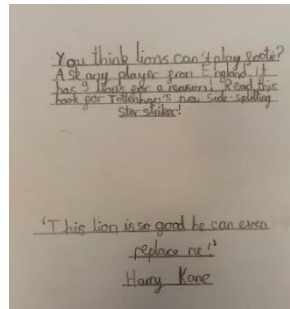 You think lions can't play footie?
Ask any player from England it
has 3 lions for a reason! Read this
book for Tottenham's new side-splitting
Star striker!
'This lion is so good he can even
replace me!'
Harry Kane